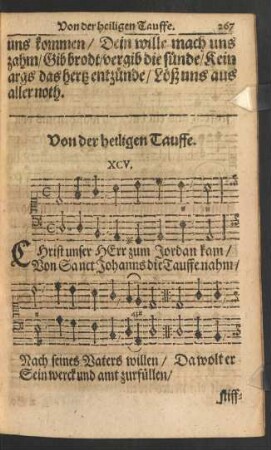 Von der heiligen Tauffe. 267
uns kommen/ Dein wille mach uns
zahm/Gib brodt/vergib die sünde/Kein
args das hertz entzünde/Löß uns aus
aller noth.
Von der heiligen Tauffe.
XCV.
CHrist unser HErr zum Jordan kam/
Von Sanct Johanns die Tauffe nahm/
Nach seines Vaters willen/ Da wolt er
Sein werck und amt zurfüllen/
stiff-